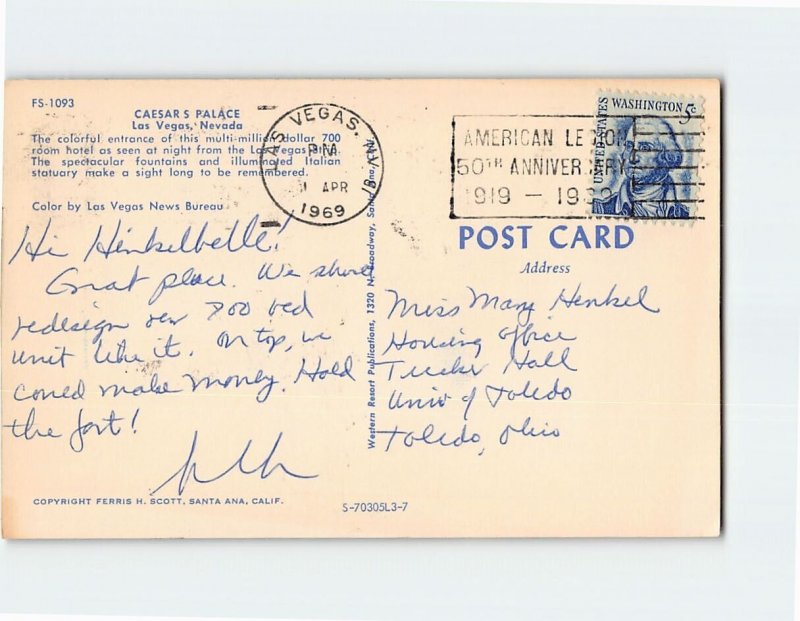 FS-1093
CAESAR S PALACE
Las Vegas, Nevada
The colorful entrance of this multi-million dollar 700
room hotel as seen at night from the Las Vegas Strip.
The spectacular fountains and illuminated Italian
statuary make a sight long to be remembered.
Color by Las Vegas News Bureau
Hi Hinkelbelle!
Great place. We should
redesign our 700 bed
unit like it. On top, we
could make money. Hold
the fort!
COPYRIGHT FERRIS H. SCOTT, SANTA ANA, CALIF.
S-70305L3-7
Western Resort Publications, 1320 N. Broadway, Santa Ana,
LAS VEGAS, NV
PM
1 APR
1969
AMERICAN LEGION
50TH ANNIVERSARY
1919 - 1969
UNITED STATES
WASHINGTON 5c
POST CARD
Address
Miss Mary Henkel
Housing Office
Tucker Hall
Univ of Toledo
Toledo, Ohio